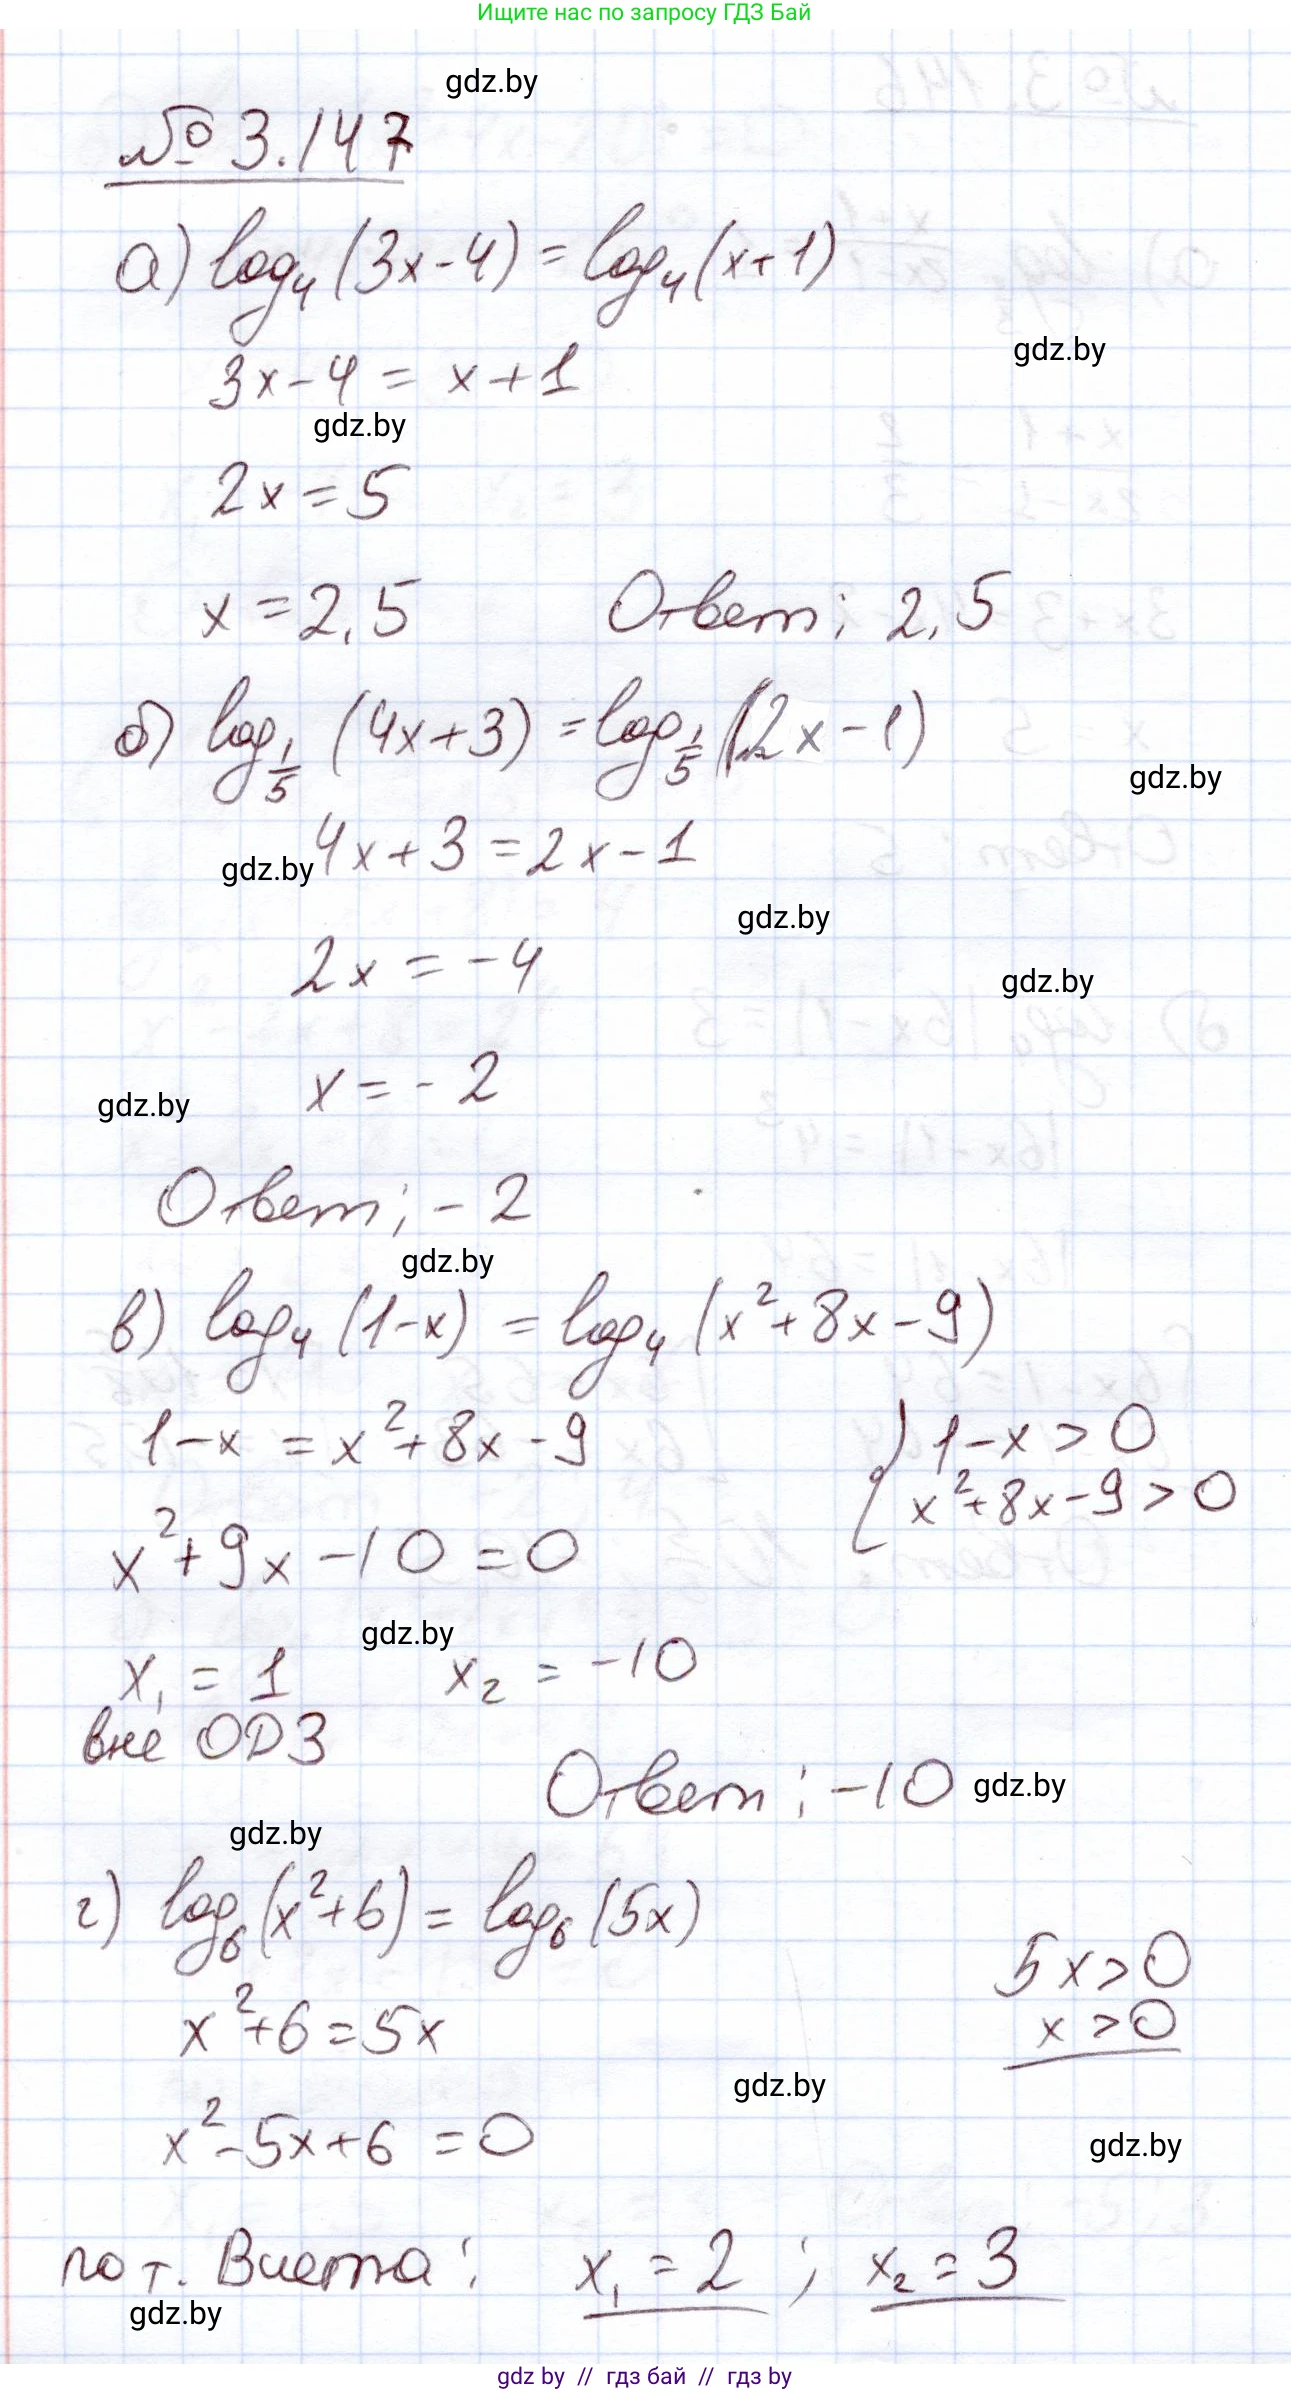 Ищите нас по запросу ГДЗ Бай
gdz.by
№ 3.147
а) log₄(3x-4) = log₄(x+1)
gdz.by
3x-4 = x+1
gdz.by
2x = 5
x = 2,5 Ответ: 2,5
б) log_{1/5} (4x+3) = log_{1/5} (2x-1)
gdz.by
4x+3 = 2x-1
gdz.by
gdz.by
2x = -4
gdz.by
x = -2
gdz.by
Ответ: -2
gdz.by
в) log₄(1-x) = log₄(x²+8x-9)
1-x = x²+8x-9 { 1-x > 0
x²+8x-9 > 0
x²+9x-10 = 0
gdz.by
x₁ = 1 x₂ = -10
вне ОДЗ
Ответ: -10 gdz.by
gdz.by
г) log₆(x²+6) = log₆(5x)
5x > 0
x²+6 = 5x x > 0
gdz.by
x²-5x+6 = 0 gdz.by
по т. Виета: x₁ = 2 ; x₂ = 3
gdz.by
gdz by // гдз бай // гдз by